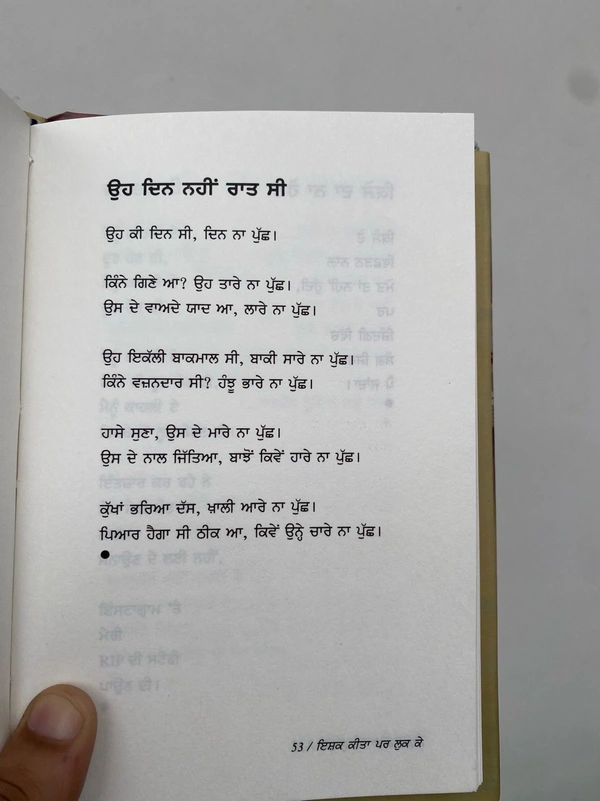 ਉਹ ਦਿਨ ਨਹੀਂ ਰਾਤ ਸੀ
ਉਹ ਕੀ ਦਿਨ ਸੀ, ਦਿਨ ਨਾ ਪੁੱਛ।
ਕਿੰਨੇ ਗਿਣੇ ਆ? ਉਹ ਤਾਰੇ ਨਾ ਪੁੱਛ।
ਉਸ ਦੇ ਵਾਅਦੇ ਯਾਦ ਆ, ਲਾਰੇ ਨਾ ਪੁੱਛ।
ਉਹ ਇਕੱਲੀ ਬਾਕਮਾਲ ਸੀ, ਬਾਕੀ ਸਾਰੇ ਨਾ ਪੁੱਛ।
ਕਿੰਨੇ ਵਜ਼ਨਦਾਰ ਸੀ? ਹੰਝੂ ਭਾਰੇ ਨਾ ਪੁੱਛ।
ਹਾਸੇ ਸੁਣਾ, ਉਸ ਦੇ ਮਾਰੇ ਨਾ ਪੁੱਛ।
ਉਸ ਦੇ ਨਾਲ ਜਿੱਤਿਆ, ਬਾਝੋਂ ਕਿਵੇਂ ਹਾਰੇ ਨਾ ਪੁੱਛ।
ਕੁੱਖਾਂ ਭਰਿਆ ਦੱਸ, ਖ਼ਾਲੀ ਆਰੇ ਨਾ ਪੁੱਛ।
ਪਿਆਰ ਹੈਗਾ ਸੀ ਠੀਕ ਆ, ਕਿਵੇਂ ਉਨ੍ਹੇ ਚਾਰੇ ਨਾ ਪੁੱਛ।
53 / ਇਸ਼ਕ ਕੀਤਾ ਪਰ ਲੁਕ ਕੇ